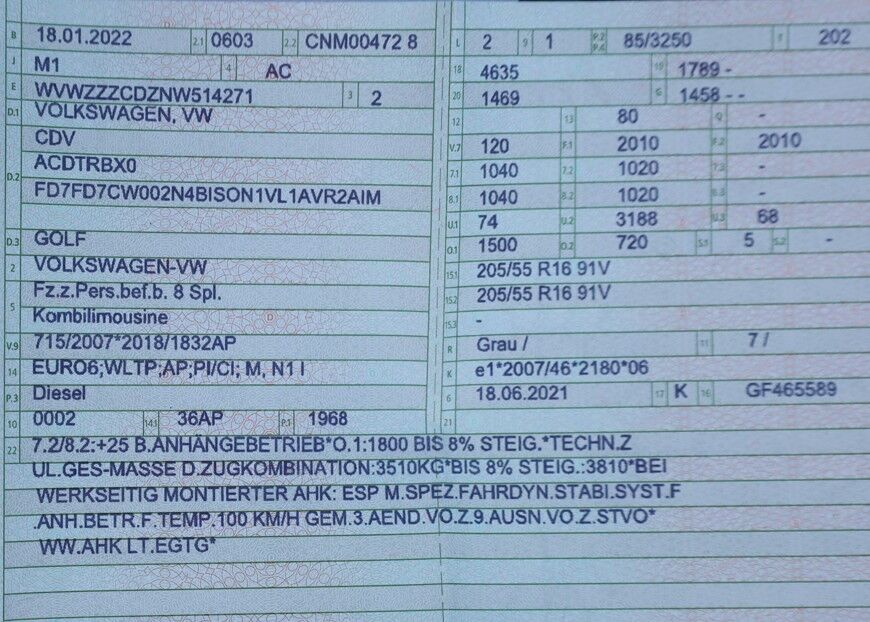 B 18.01.2022 2.1 0603 2.2 CNM00472 8
J M1 4 AC
E WVWZZZCDZNW514271 3 2
D.1 VOLKSWAGEN, VW
CDV
D.2 ACDTRBX0
FD7FD7CW002N4BISON1VL1AVR2AIM
D.3 GOLF
2 VOLKSWAGEN-VW
5 Fz.z.Pers.bef.b. 8 Spl.
Kombilimousine
V.9 715/2007*2018/1832AP
14 EURO6;WLTP;AP;PI/CI; M, N1 I
P.3 Diesel
10 0002 14.1 36AP P.1 1968
L 2 9 1 P.2 P.4 85/3250 T 202
18 4635 19 1789 -
20 1469 G 1458 - -
12 13 80 Q -
V.7 120 F.1 2010 F.2 2010
7.1 1040 7.2 1020 7.3 -
8.1 1040 8.2 1020 8.3 -
U.1 74 U.2 3188 U.3 68
O.1 1500 O.2 720 S.1 5 S.2 -
15.1 205/55 R16 91V
15.2 205/55 R16 91V
15.3 -
R Grau / 11 7 /
K e1*2007/46*2180*06
6 18.06.2021 17 K 16 GF465589
21
22 7.2/8.2:+25 B.ANHÄNGEBETRIEB*O.1:1800 BIS 8% STEIG.*TECHN.Z
UL.GES-MASSE D.ZUGKOMBINATION:3510KG*BIS 8% STEIG.:3810*BEI
WERKSEITIG MONTIERTER AHK: ESP M.SPEZ.FAHRDYN.STABI.SYST.F
.ANH.BETR.F.TEMP.100 KM/H GEM.3.AEND.VO.Z.9.AUSN.VO.Z.STVO*
WW.AHK LT.EGTG*